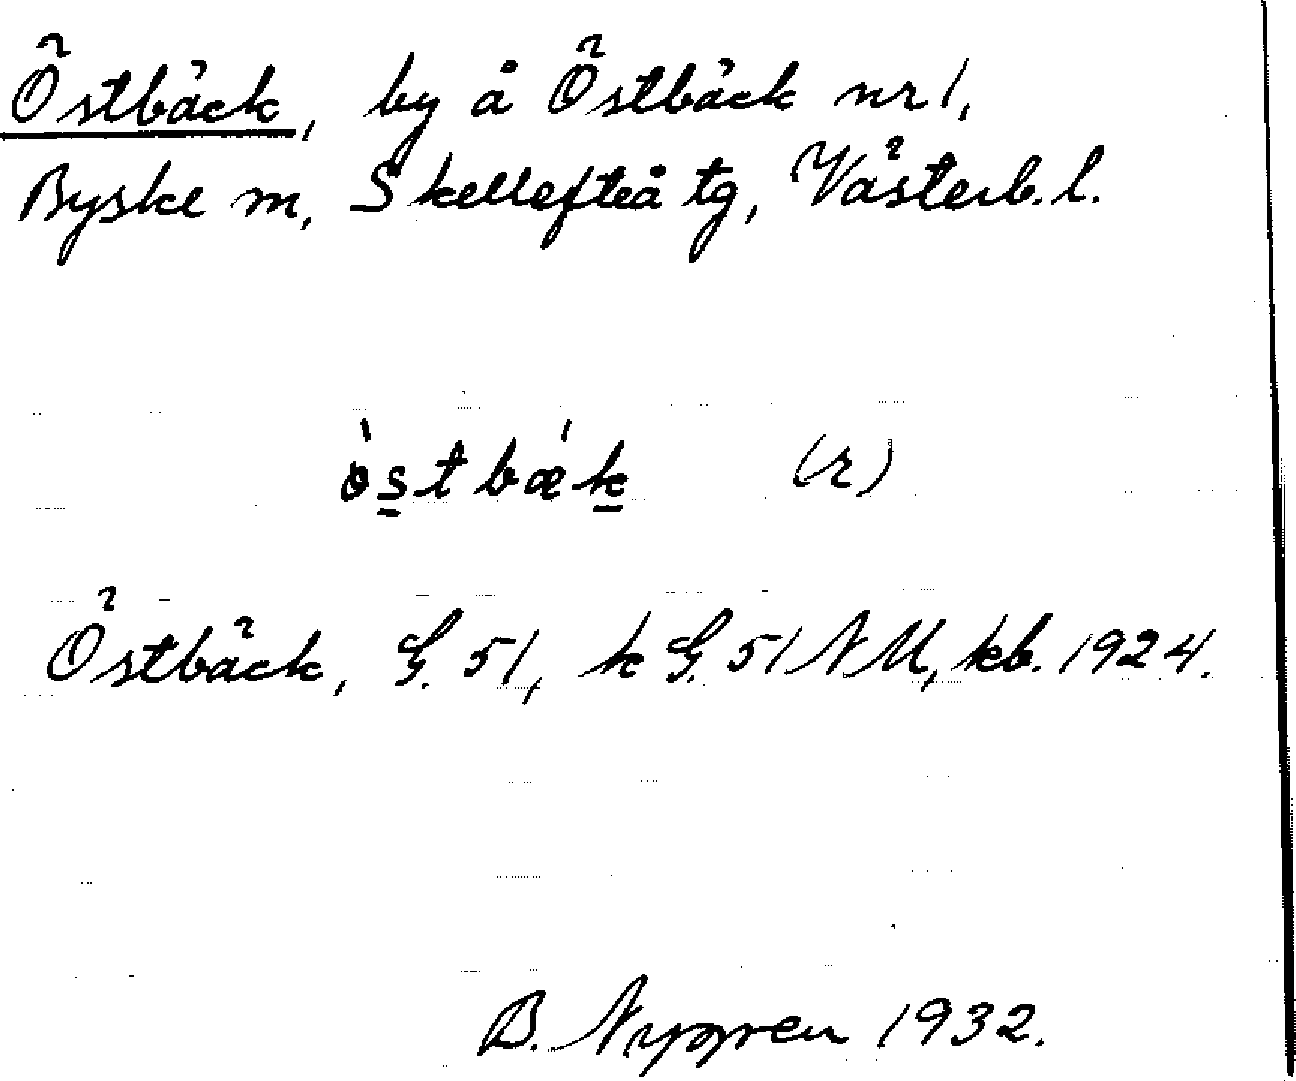 Östbäck, by å Östbäck nr 1,
Byske sn, Skellefteå tg, Västerb. l.
östbæk (r)
Östbäck, G. 51, k G. 51 NU, kb. 1924.
B. Nygren 1932.